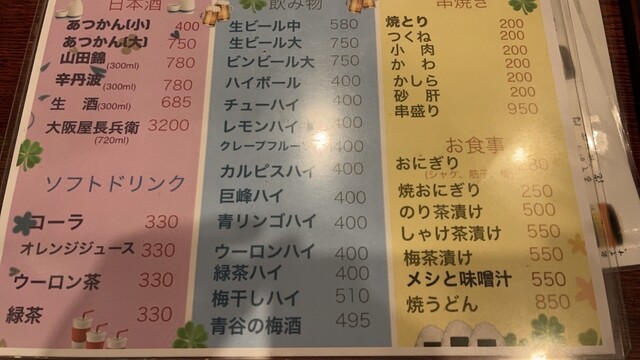 日本酒
あつかん(小) 400
あつかん(大) 750
山田錦(300ml) 780
辛丹波(300ml) 780
生 酒(300ml) 685
大阪屋長兵衛 3200
(720ml)
ソフトドリンク
コーラ 330
オレンジジュース 330
ウーロン茶 330
緑茶 330
飲み物
生ビール中 580
生ビール大 750
ビンビール大 750
ハイボール 400
チューハイ 400
レモンハイ 400
クレープフルーツ 400
カルピスハイ 400
巨峰ハイ 400
青リンゴハイ 400
ウーロンハイ 400
緑茶ハイ 400
梅干しハイ 510
青谷の梅酒 495
串焼き
焼とり 200
つくね 200
小 肉 200
か わ 200
かしら 200
砂 肝 200
串盛り 950
お食事
おにぎり
(シャケ、筋子、
焼おにぎり 250
のり茶漬け 500
しゃけ茶漬け 550
梅茶漬け 550
メシと味噌汁 550
焼うどん 850